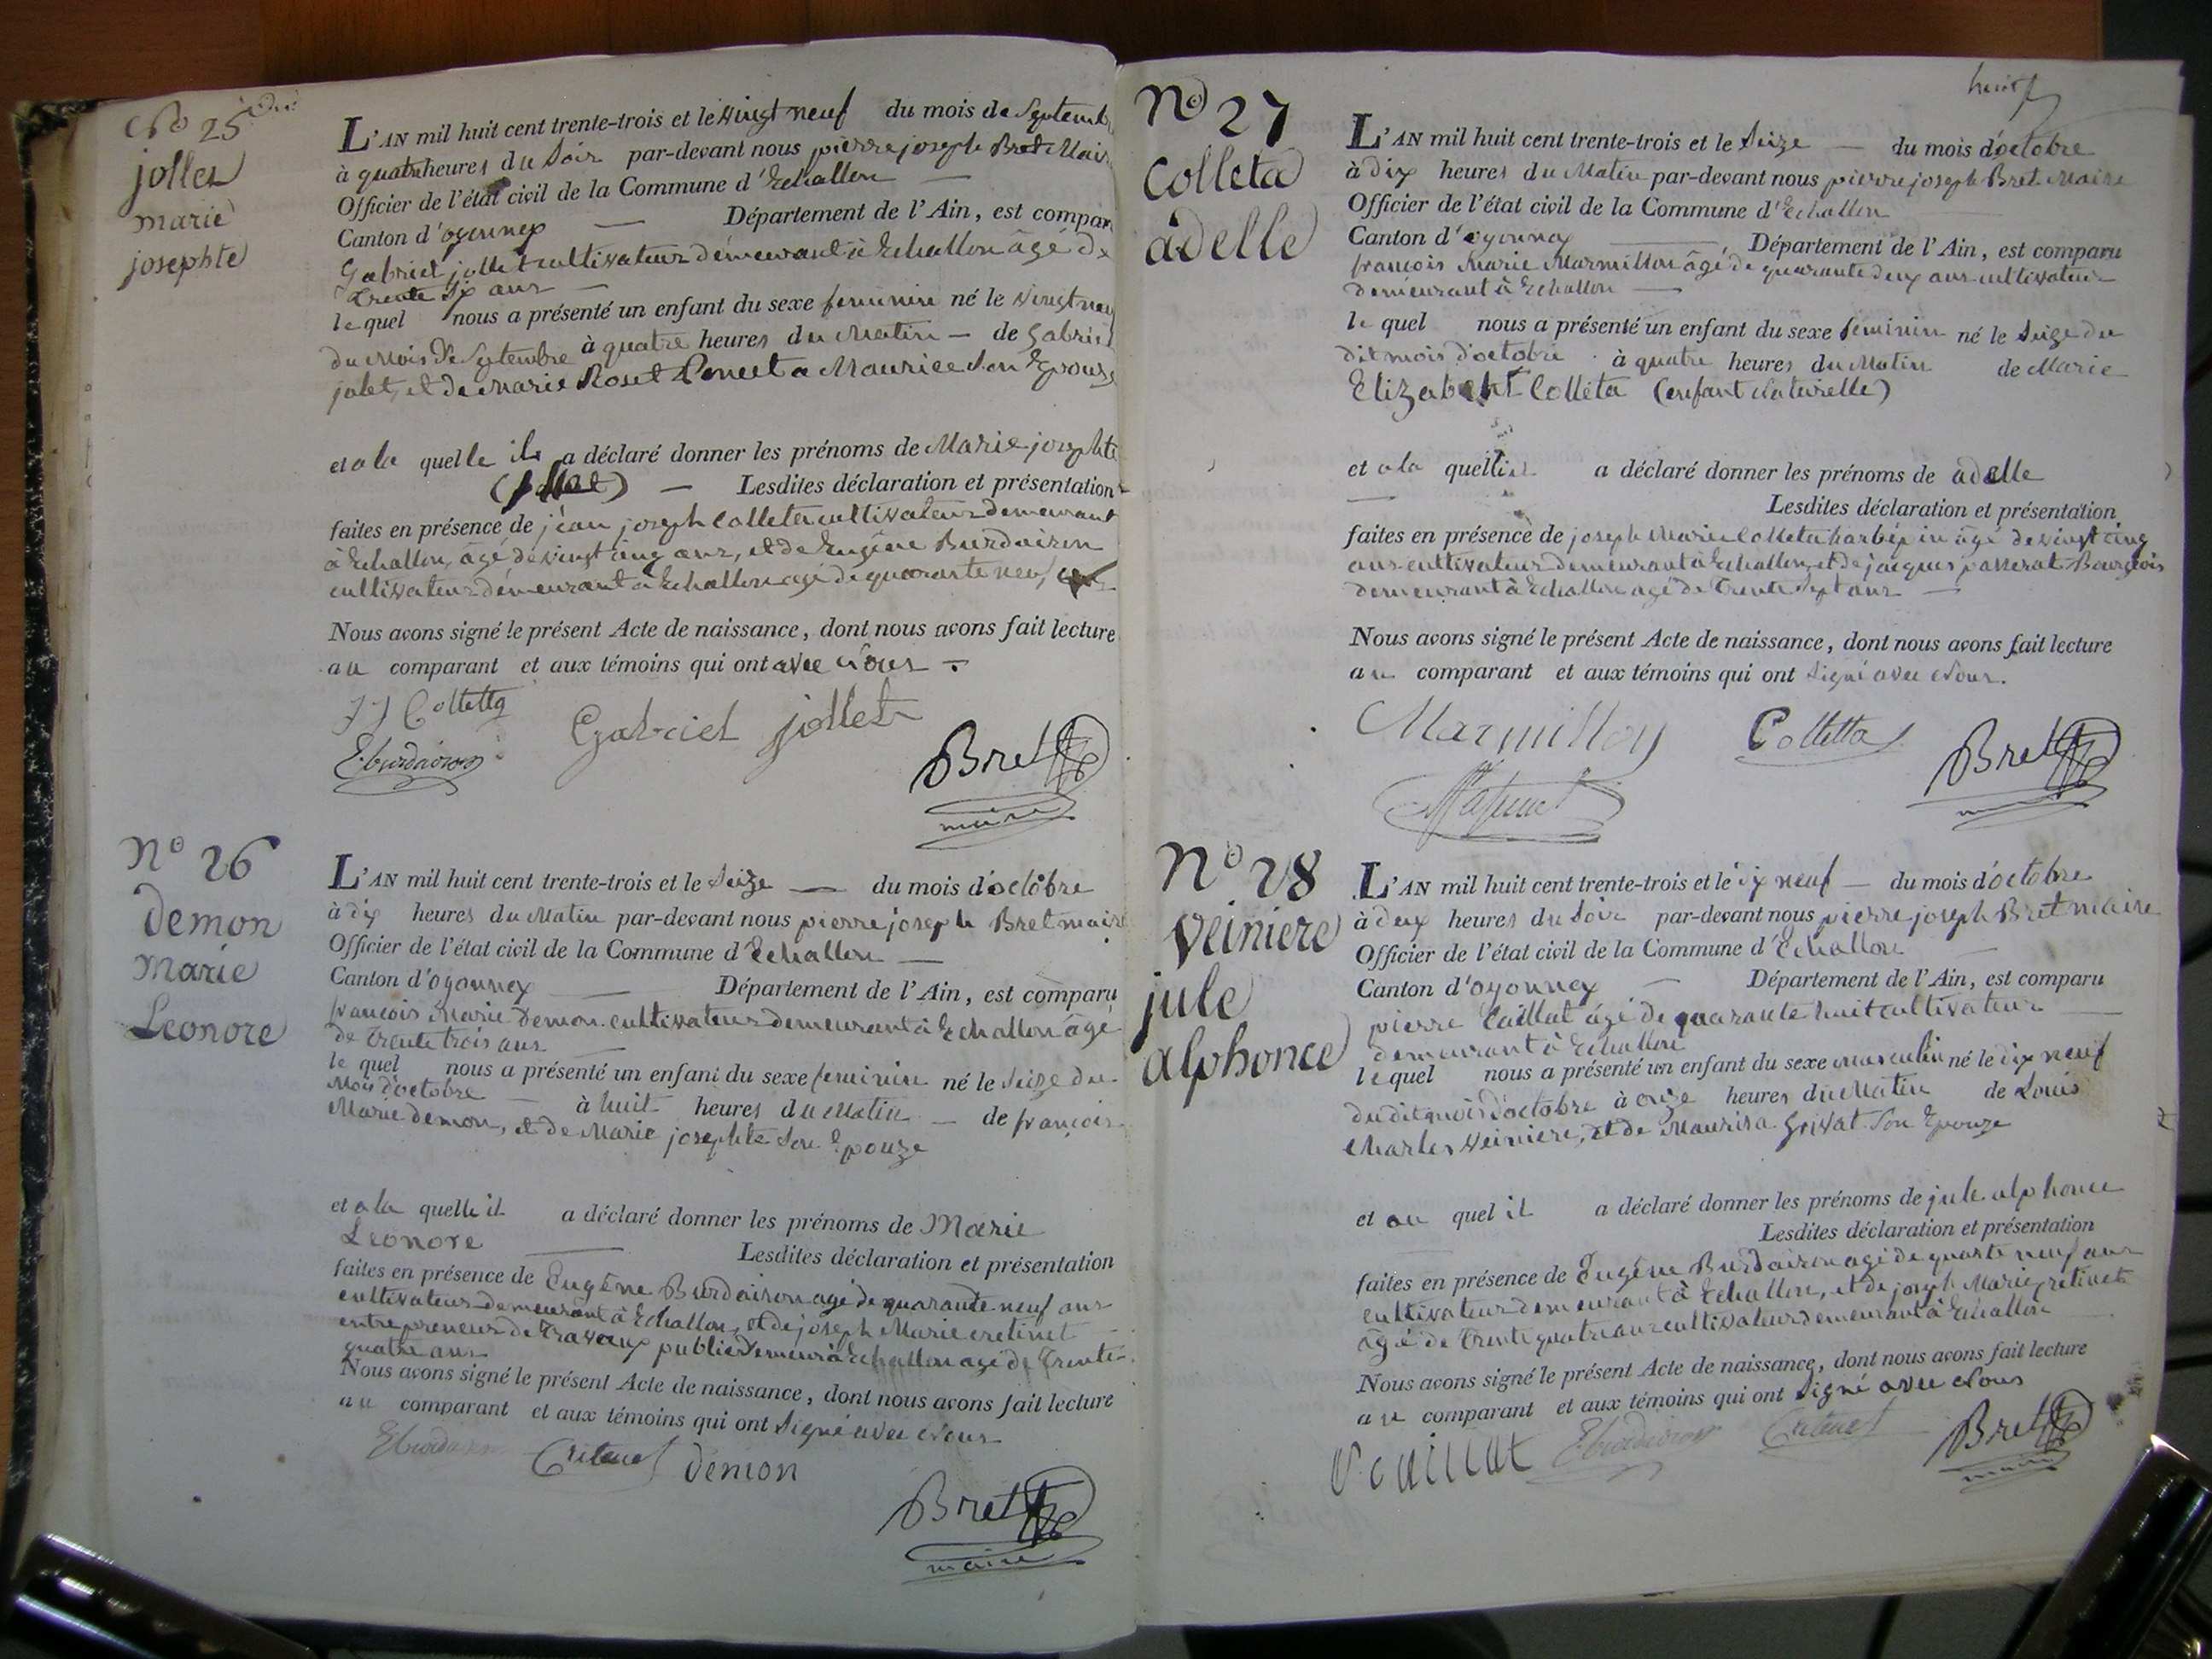 No 25
jollet
marie
josephte
L'AN mil huit cent trente-trois et le vingt neuf du mois de Septemb
à quatre heures du Soir par-devant nous pierre joseph Bret Mair
Officier de l'état civil de la Commune d'Echallon
Canton d'oyonnex Département de l'Ain, est compar
Gabriel jollet cultivateur demeurant à Echallon âgé de
trente six ans
le quel nous a présenté un enfant du sexe feminin né le vingt neu
du Mois de Septembre à quatre heures du Matin de Gabriel
jolet, et de Marie Roset Poncet a Maurice Son Epouze
et a la quelle il a déclaré donner les prénoms de Marie josephte
Lesdites déclaration et présentation
faites en présence de jean joseph Colleta cultivateur demeurant
à Echallon, âgé de vingt cinq ans, et de Eugène Burdairon
cultivateur demeurant a Echallon agé de quarante neuf
Nous avons signé le présent Acte de naissance, dont nous avons fait lecture
au comparant et aux témoins qui ont avec Nous
J J Colletta
Gabriel jollet
E burdairon
Bret
maire
N° 26
Demon
Marie
Leonore
L'AN mil huit cent trente-trois et le Seize du mois d'octobre
à dix heures du Matin par-devant nous pierre joseph Bret maire
Officier de l'état civil de la Commune d'Echallon
Canton d'oyonnex Département de l'Ain, est comparu
francois Marie Demon cultivateur demeurant à Echallon âgé
de trente trois ans
le quel nous a présenté un enfant du sexe feminin né le Seize du
Mois d'octobre à huit heures du Matin de françois
Marie demon, et de Marie josephte Son Epouze
et a la quelle il a déclaré donner les prénoms de Marie
Leonore Lesdites déclaration et présentation
faites en présence de Eugène Burdairon agé de quarante neuf ans
cultivateur demeurant à Echallon, et de joseph Marie cretinet
entrepreneur de travaux publics demeur à Echallon agé de trente
quatre ans
Nous avons signé le présent Acte de naissance, dont nous avons fait lecture
au comparant et aux témoins qui ont Signé avec Nous
E burdairon Cretinet demon
Bret
maire
huit
No 27
Colleta
adelle
L'AN mil huit cent trente-trois et le Seize du mois d'octobre
à dix heures du Matin par-devant nous pierre joseph Bret Maire
Officier de l'état civil de la Commune d'Echallon
Canton d'oyonnax Département de l'Ain, est comparu
francois Marie Marmillon âgé de quarante deux ans cultivateur
demeurant à Echallon
le quel nous a présenté un enfant du sexe feminin né le Seize du
dit mois d'octobre à quatre heures du Matin de Marie
Elizabeht Colleta (enfant Naturelle)
et a la quelle il a déclaré donner les prénoms de adelle
Lesdites déclaration et présentation
faites en présence de joseph Marie Colleta âgé de vingt cinq
ans cultivateur demeurant à Echallon, et de jacques passerat Bourgeois
demeurant à Echallon agé de trente Sept ans
Nous avons signé le présent Acte de naissance, dont nous avons fait lecture
au comparant et aux témoins qui ont Signé avec Nous.
Marmillon Colletta
Bret
N° 28
Veiniere
jule
alphonce
L'AN mil huit cent trente-trois et le dix neuf du mois d'octobre
à deux heures du Soir par-devant nous pierre joseph Bret maire
Officier de l'état civil de la Commune d'Echallon
Canton d'oyonnex Département de l'Ain, est comparu
pierre âgé de quarante huit cultivateur
demeurant à Echallon
le quel nous a présenté un enfant du sexe masculin né le dix neuf
du dit mois d'octobre à onze heures du Matin de Louis
Charles Veiniere, et de Maurisa Grivat Son Epouze
et au quel il a déclaré donner les prénoms de jule alphonce
Lesdites déclaration et présentation
faites en présence de Eugène Burdairon agé de quarte neuf ans
cultivateur demeurant à Echallon, et de joseph Marie cretinet
âgé de trente quatre ans cultivateur demeurant à Echallon
Nous avons signé le présent Acte de naissance, dont nous avons fait lecture
au comparant et aux témoins qui ont Signé avec Nous
E burdairon Cretinet Bret
maire